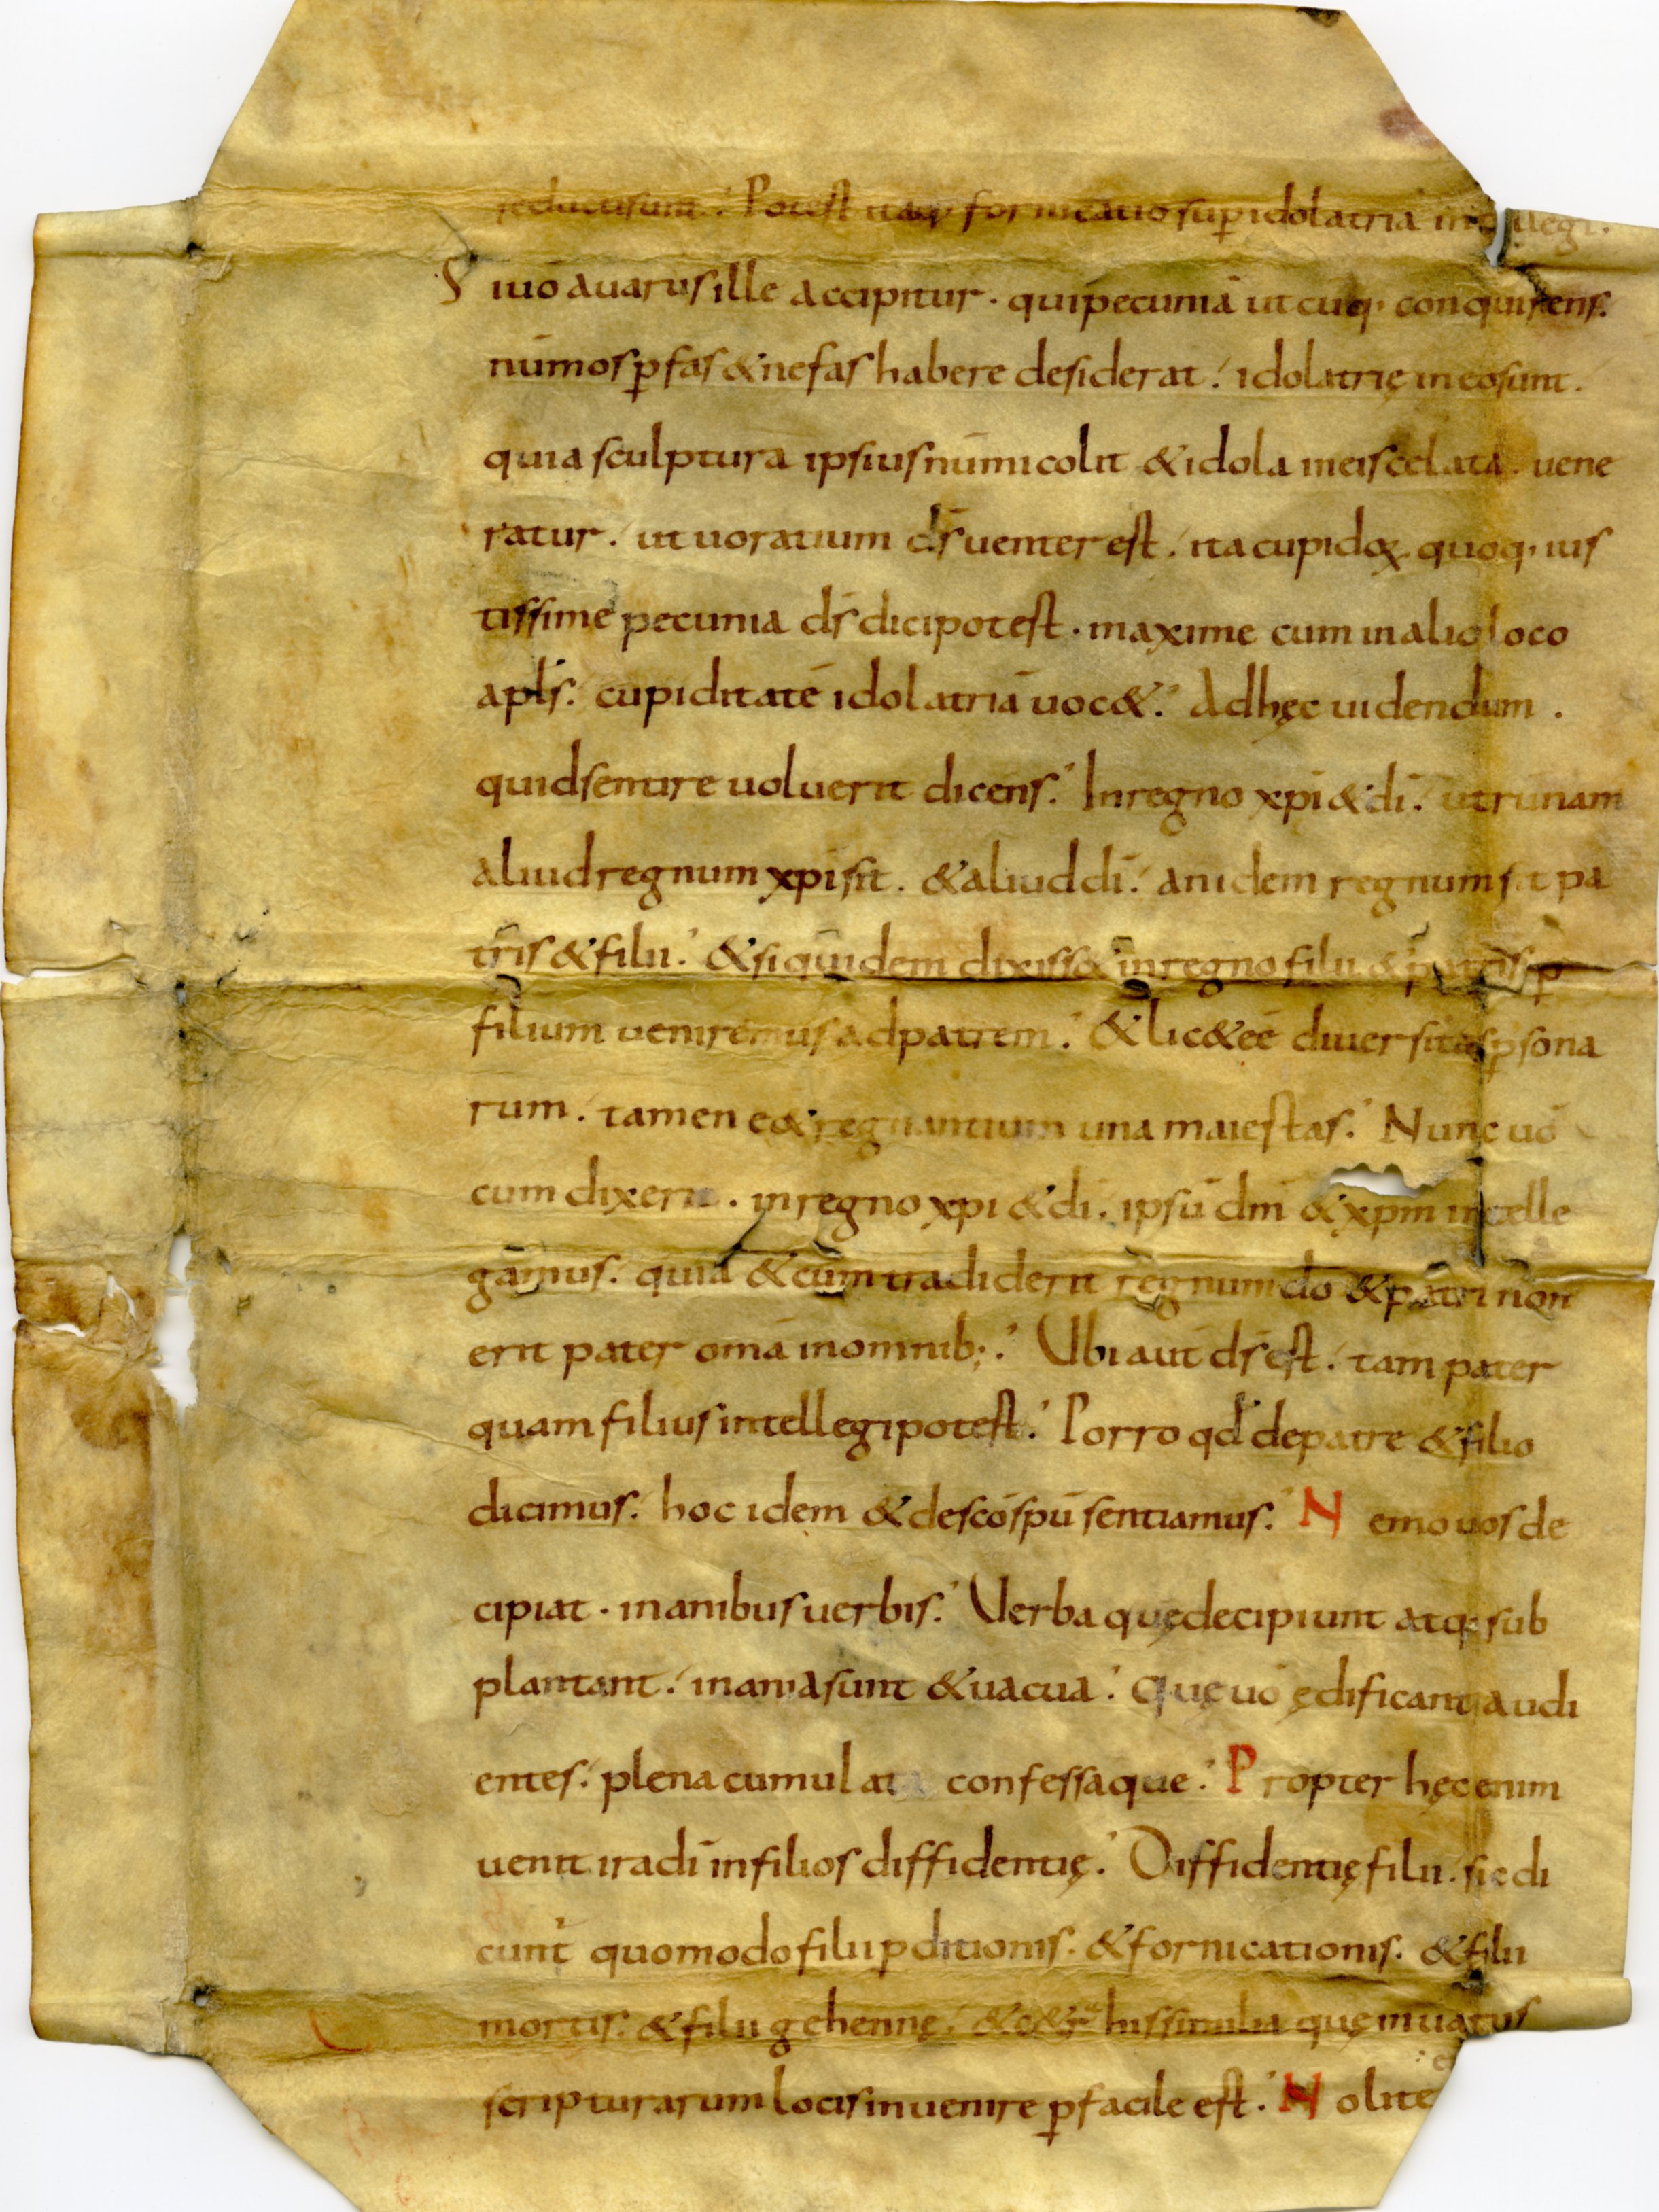 reducti sunt. Potest itaq; fornicatio sup idolatria intellegi.
S iuō auarus ille accipitur. qui pecuniā ut cuq; conquirens.
nūmos p fas & nefas habere desiderat. idolatrię in eo sunt.
quia sculptura ipsius nūmi colit & idola in eis celata. uene
ratur. ut uoratium ds uenter est. ita cupidoꝝ quoq; ius
tissime pecunia ds dici potest. maxime cum in alio loco
apls. cupiditatē idolatriā uoc&. Ad hęc uidendum.
quid sentire uoluerit dicens. In regno xpi & di. utrūnam
aliud regnum xpi sit. & aliud di. an idem regnum sit pa
tris & filii. & si quidem dixiss& in regno filii & patris ꝑ
filium ueniremus ad patrem. & lic& eē diuersitas ꝑsona
rum. tamen e& regnantium una maiestas. Nunc uō
cum dixerit. in regno xpi & di. ipsū dm̄ & xpm̄ intelle
gamus. quia & cum tradiderit regnum dō & patri non
erit pater om̄ia in omnib;. Ubi aut ds est. tam pater
quam filius intellegi potest. Porro qd de patre & filio
dicimus. hoc idem & de scō spū sentiamus. N emo uos de
cipiat. inanibus uerbis. Uerba quę decipiunt atq; sub
plantant. inania sunt & uacua. Quę uō ędificant audi
entes. plena cumulata confessaque. P ropter hęc enim
uenit ira di in filios diffidentię. Diffidentię filii. sic di
cunt quomodo filii ꝑditionis. & fornicationis. & filii
mortis. & filii gehennę. & c&ra his similia quę in uariis
scripturarum locis inuenire ꝑfacile est. N olite